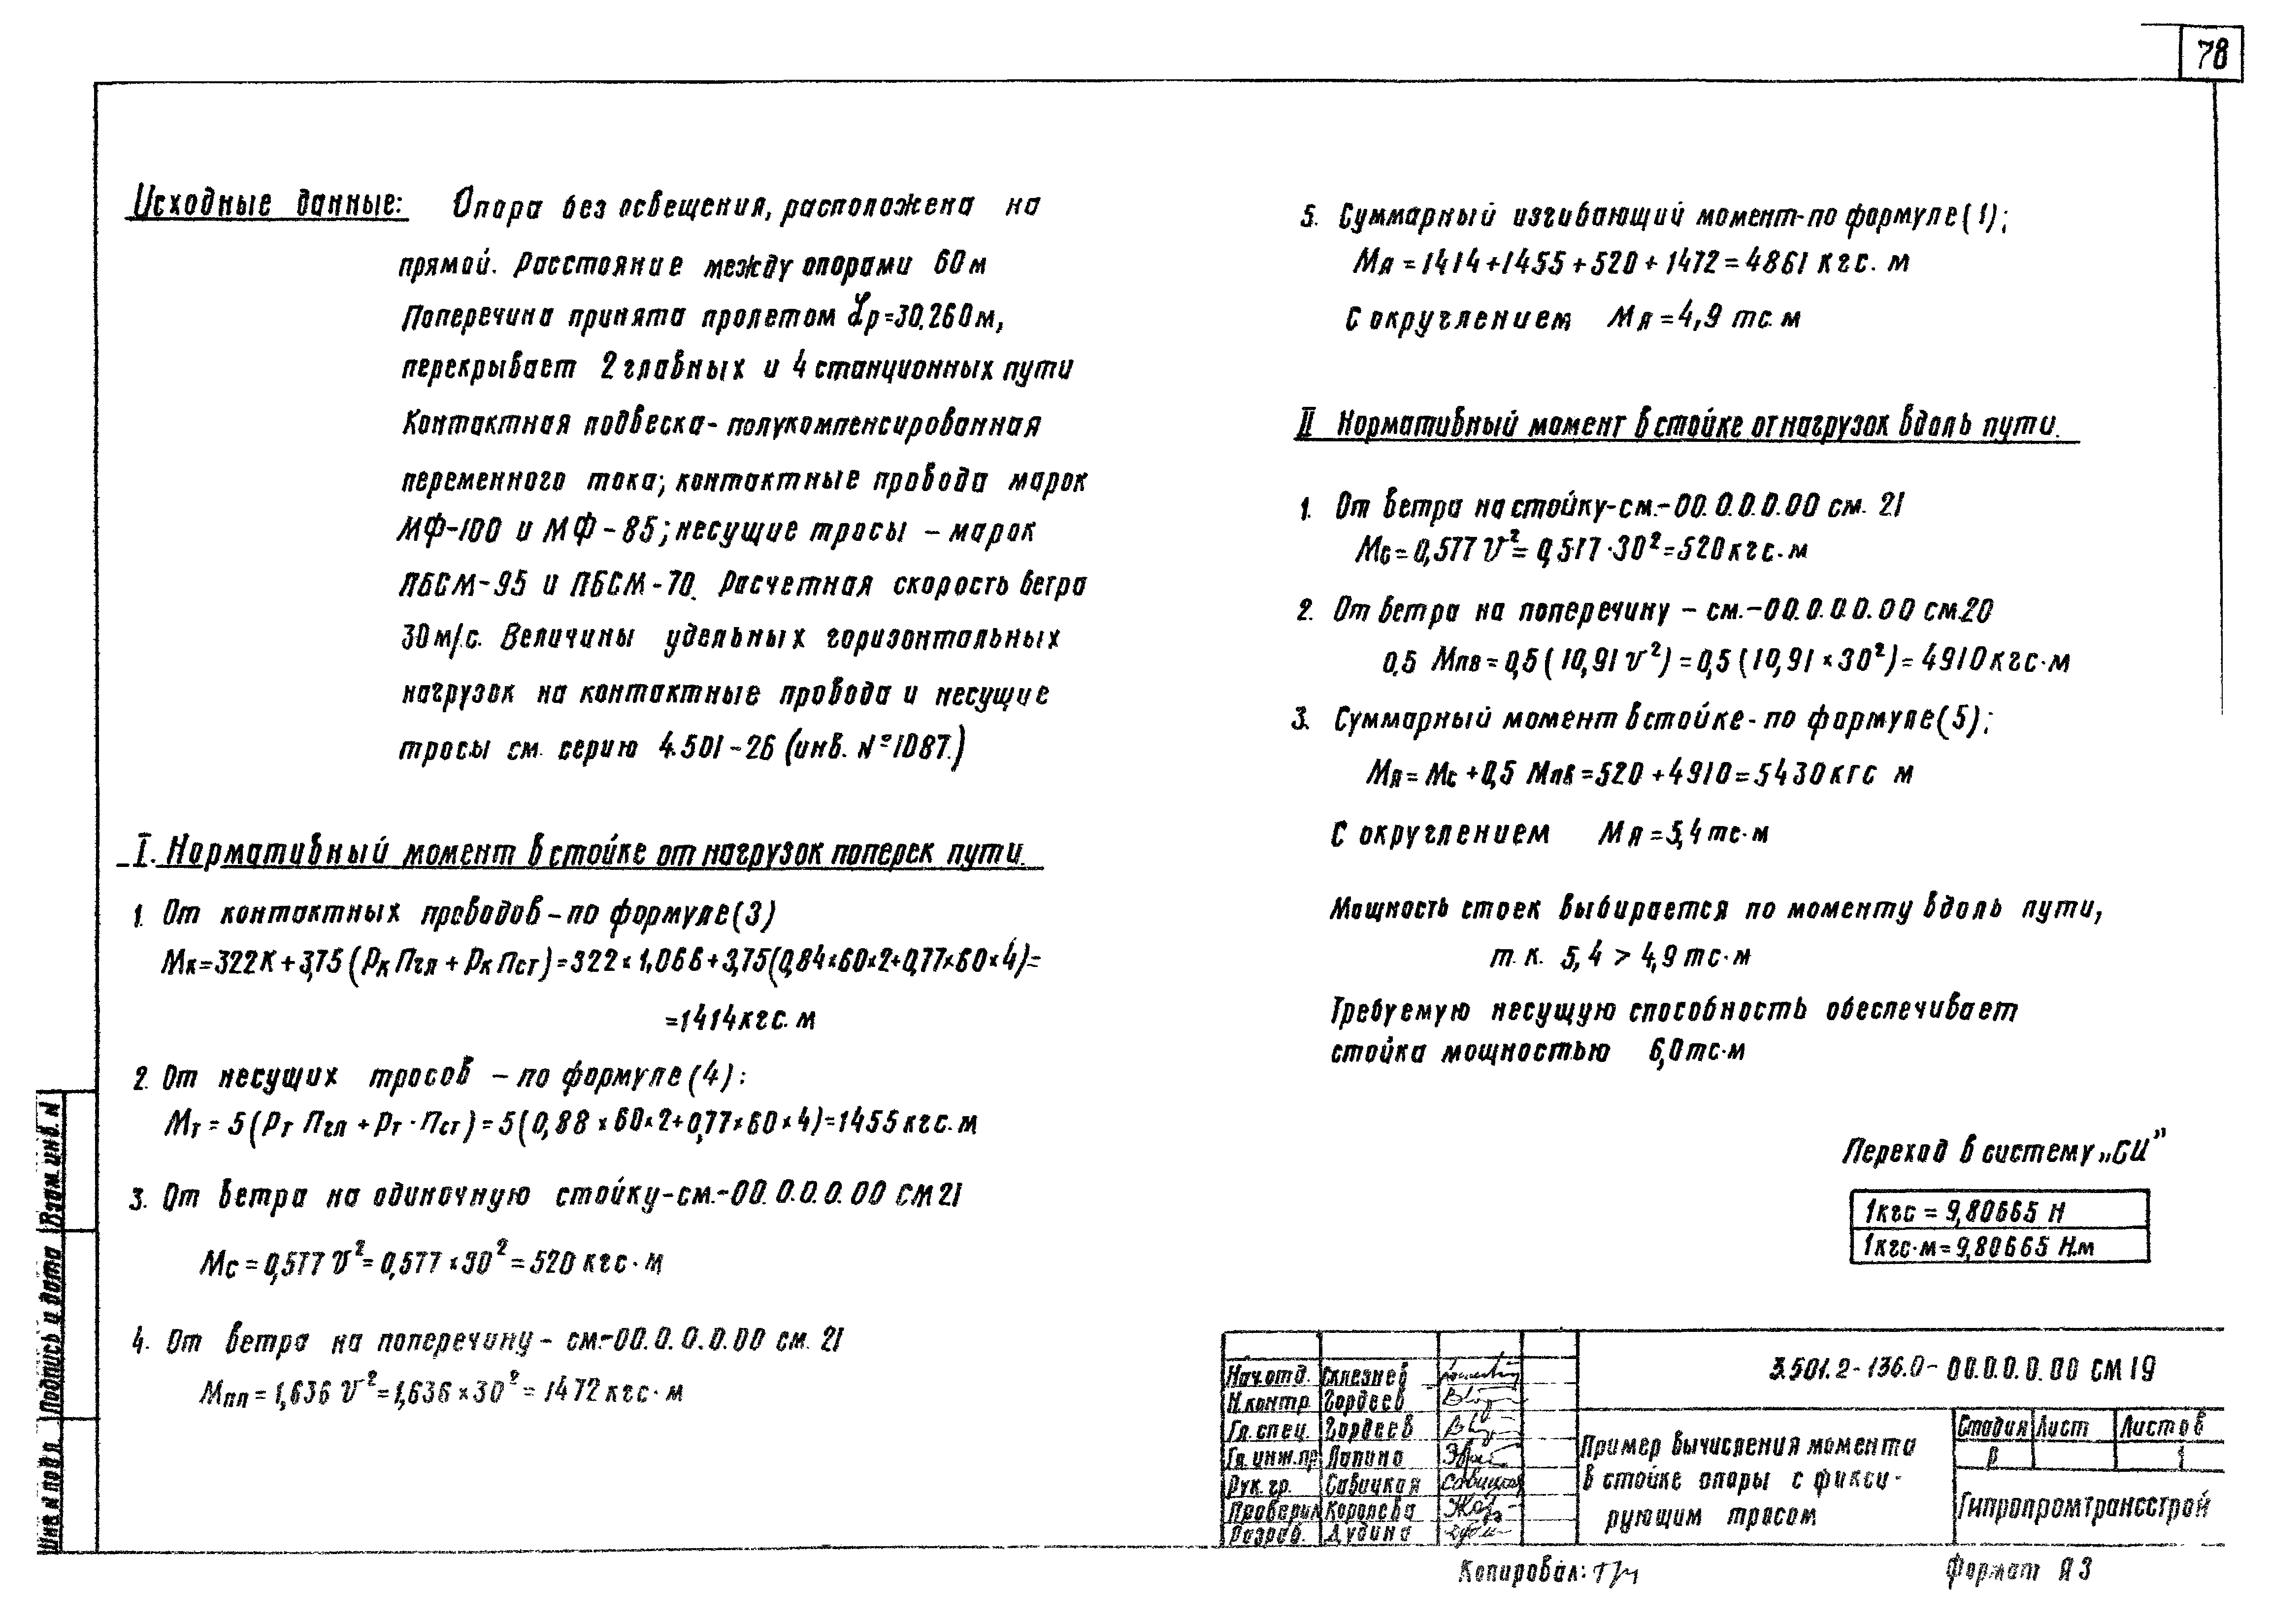 78
Исходные данные: Опора без освещения, расположена на
прямой. Расстояние между опорами 60 м
Поперечина принята пролетом Lр=30.260м,
перекрывает 2 главных и 4 станционных пути
Контактная подвеска - полукомпенсированная
переменного тока; контактные провода марок
МФ-100 и МФ-85; несущие тросы - марок
ПБСМ-95 и ПБСМ-70. Расчетная скорость ветра
30м/с. Величины удельных горизонтальных
нагрузок на контактные провода и несущие
тросы см. серию 4.501-26 (инв. №1087.)
I. Нормативный момент в стойке от нагрузок поперек пути.
1. От контактных проводов - по формуле (3)
Мк=322К+3,75(Рк Пгл + Рк Пст)=322×1,066+3,75(0,84×60×2+0,77×60×4)=
=1414кгс.м
2. От несущих тросов - по формуле (4):
Мт = 5(Рт Пгл + Рт · Пст)=5(0,88×60×2+0,77×60×4)=1455кгс.м
3. От ветра на одиночную стойку-см.-00.0.0.0.00 СМ21
Мс=0,577 V²=0,577×30²=520 кгс·м
4. От ветра на поперечину - см.-00.0.0.0.00 см. 21
Мпп=1,636 V²=1,636×30²=1472 кгс·м
5. Суммарный изгибающий момент-по формуле (1);
МЯ=1414+1455+520+1472=4861 кгс.м
С округлением МЯ=4,9 тс.м
II Нормативный момент в стойке от нагрузок вдоль пути.
1. От ветра на стойку-см.-00.0.0.0.00 см. 21
Мс=0,577 V²=0,517·30²=520кгс·м
2. От ветра на поперечину - см.-00.0.0.0.00 см.20
0.5 Мпв=0,5(10,91 V²)=0,5(10,91×30²)=4910кгс·м
3. Суммарный момент в стойке-по формуле (5);
МЯ=Мс+0,5 Мпв=520+4910=5430кгс м
С округлением МЯ=5,4тс·м
Мощность стоек выбирается по моменту вдоль пути,
т.к. 5,4 > 4,9тс·м
Требуемую несущую способность обеспечивает
стойка мощностью 6,0тс·м
Переход в систему „СИ”
1кгс = 9,80665 Н
1кгс·м=9,80665 Н.м
Взам. инв. N
Подпись и дата
Инв. N подл.
3.501.2-136.0-00.0.0.0.00 СМ19
Нач.отд. Склезнев
Н.контр Гордеев
Гл.спец. Гордеев
Гл.инж.пр Лапина
Рук.гр. Савицкая
Проверил Королева
Разраб. Дудина
Пример вычисления момента
в стойке опоры с фикси-
рующим тросом
Стадия Лист Листов
Р 1
Гипропромтрансстрой
Копировал:
Формат А3